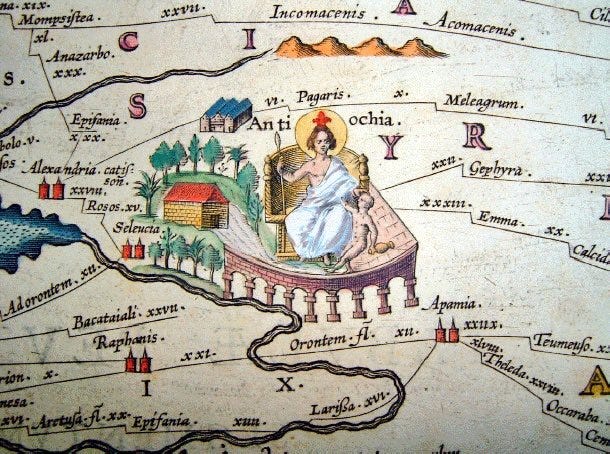 xix.
Mompsistea
xxvii.
Incomacenis
A
Acomacenis.
xl.
C
I
Anazarbo.
xxx.
S.
S
vi.
Pagaris.
x.
Meleagrum.
vi.
Epifania.
xxx.
Antiochia.
Y
R
bolo. v.
Alexandria. catis=
son.
xxviii.
xxii.
Gephyra.
Rosos. xv.
xxxiii.
Emma.
xx.
Seleucia.
Adorontem. xii.
Bacataiali. xxvii.
Apamia.
Raphanis.
xxi.
Orontem. fl.
xii.
xxiix.
Teumeuso.
xlviii.
Theleda. xxviii.
I
X.
A
Occaraba.
Larissa. xvi.
xvi.
Aretusa. fl. xx.
Epifania.
xiii.